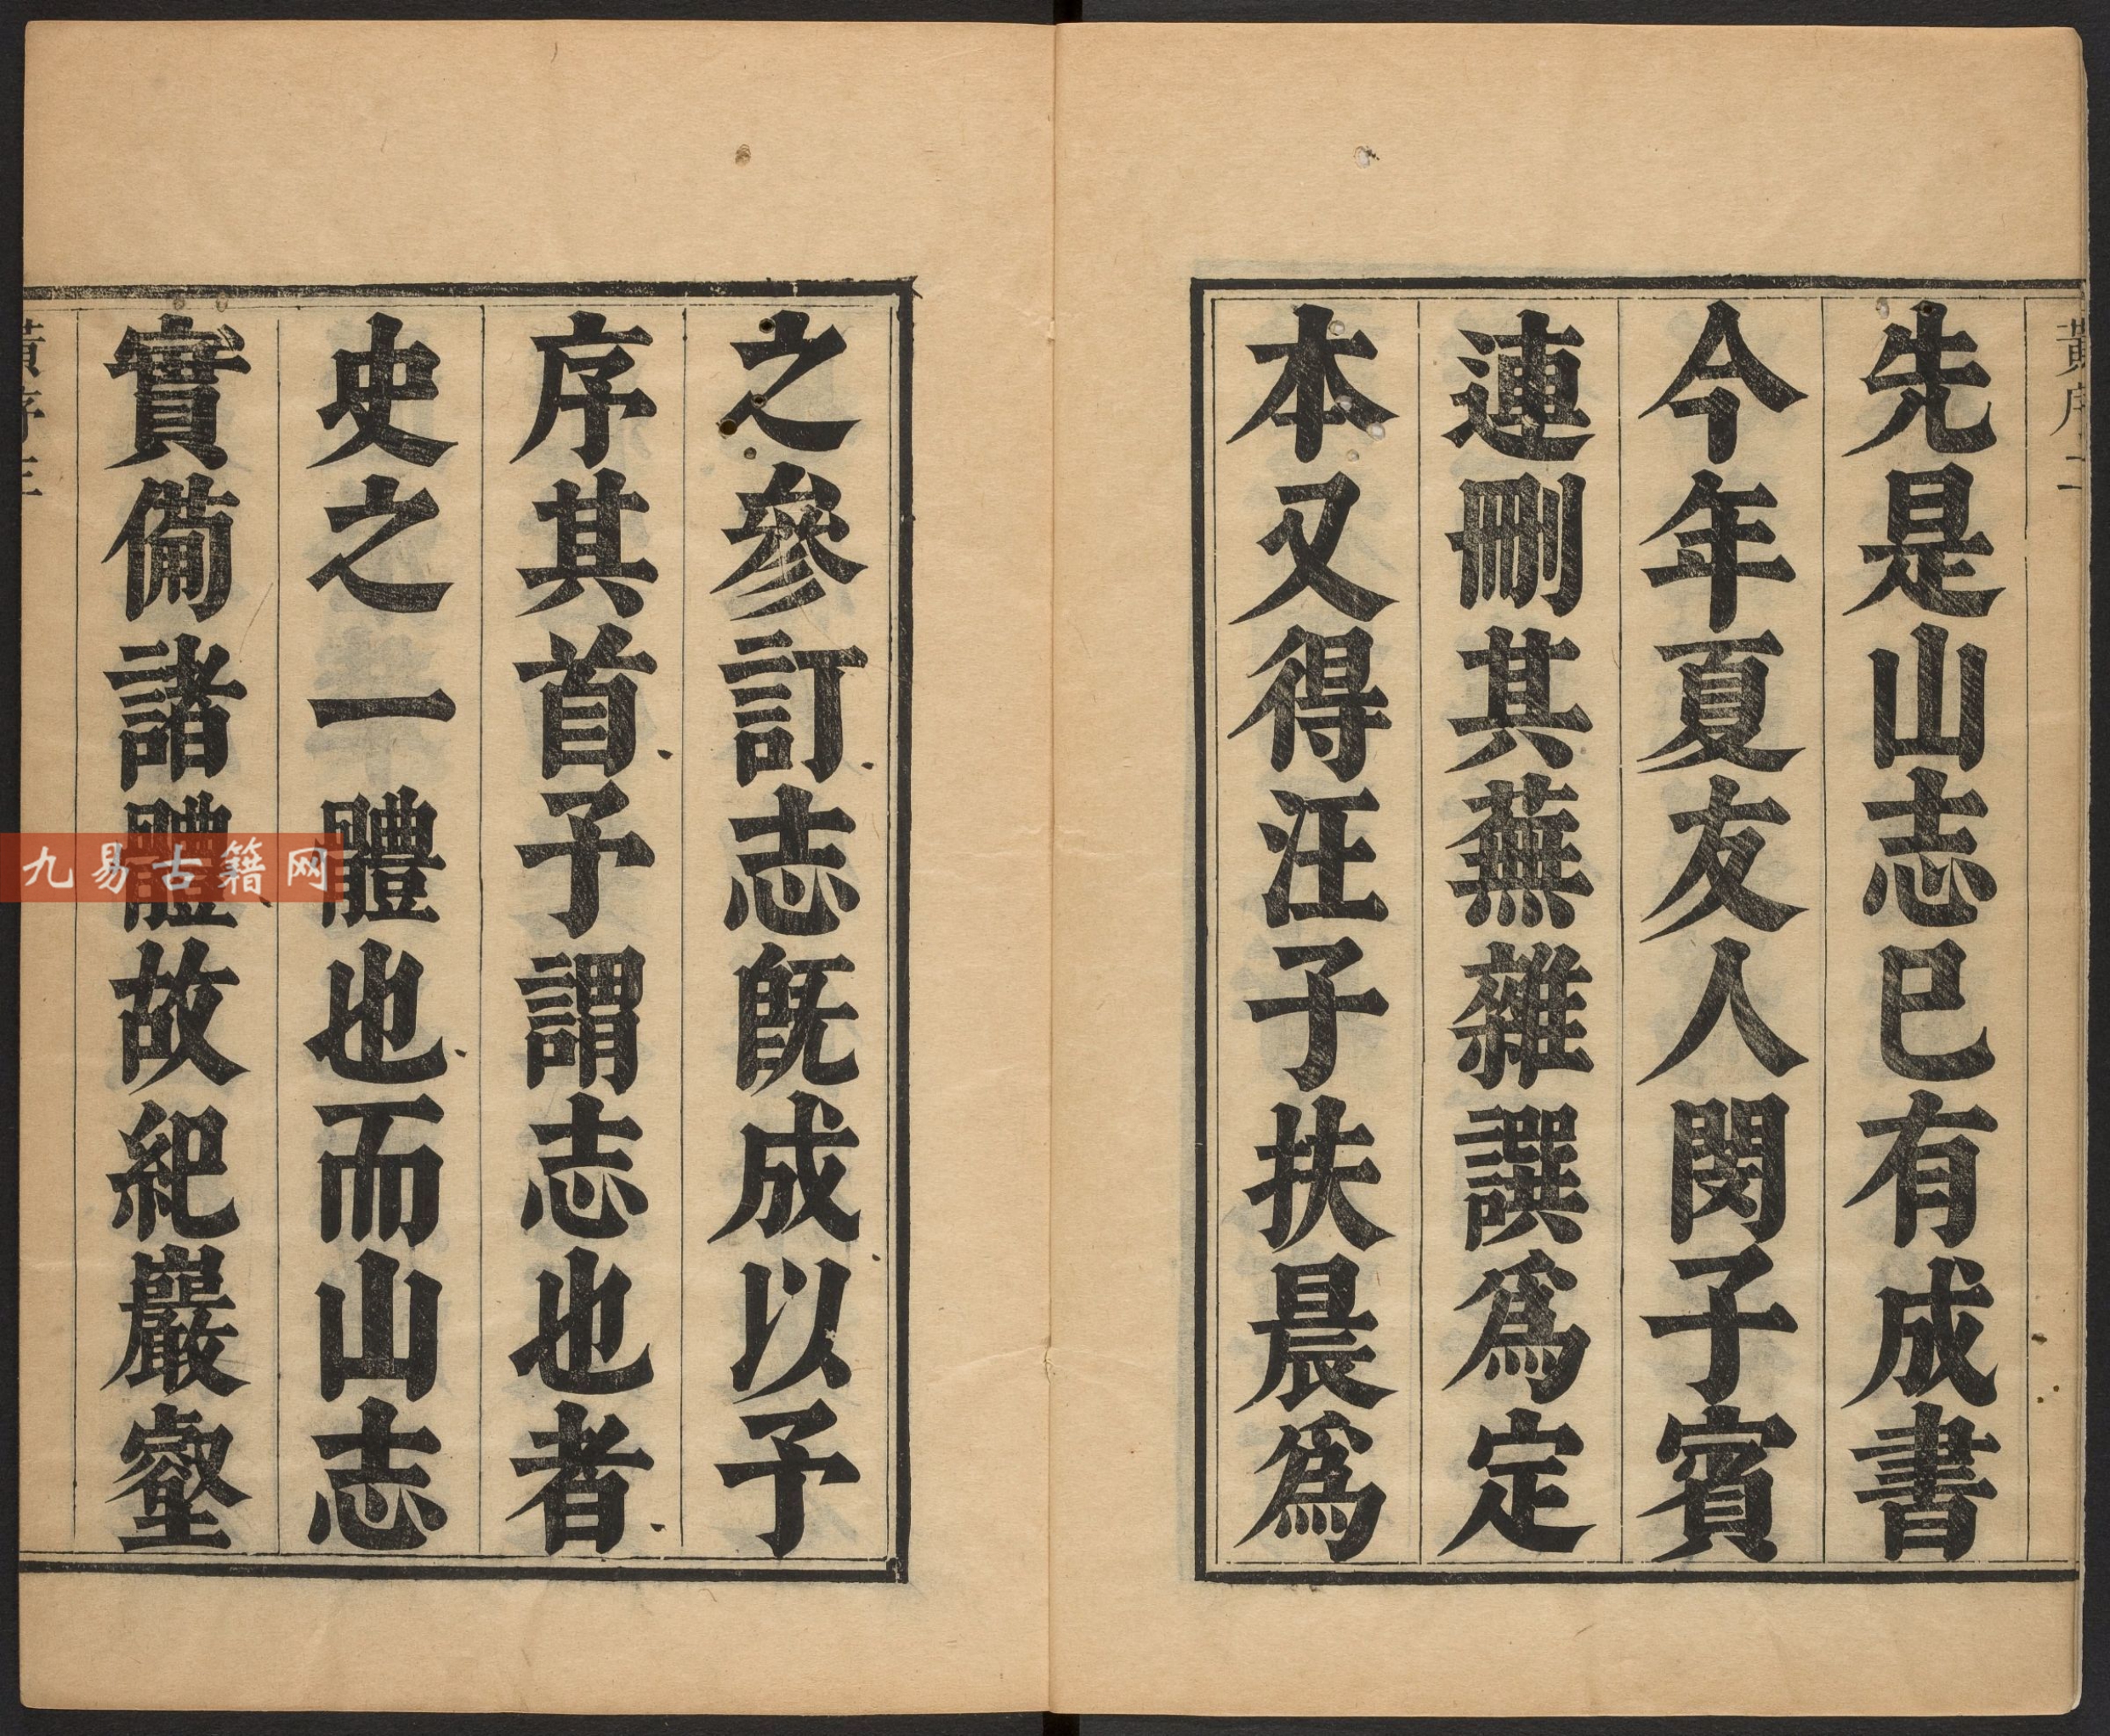 黃序 二
先是山志已有成書
今年夏友人閔子賓
連刪其蕪雜譔爲定
本又得汪子扶晨爲
之參訂志旣成以予
序其首予謂志也者
史之一體也而山志
實備諸體故紀巖壑
黃序 三
九易古籍网